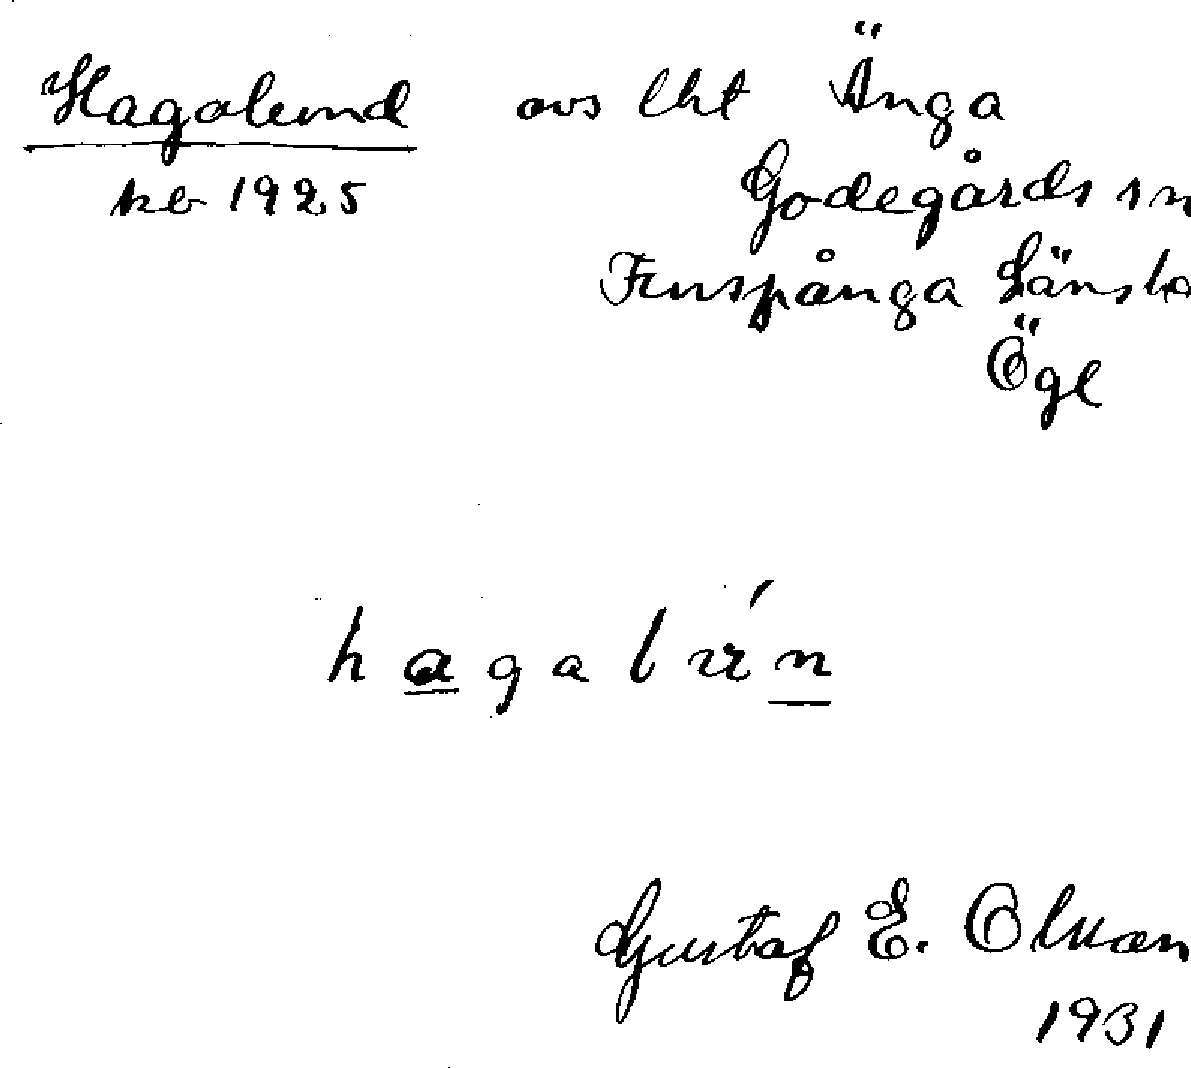 Hagalund avs lht Änga
kb 1925 Godegårds sn
Finspånga Länsh
Ögl
hagalún
Gustaf E. Olsson
1931